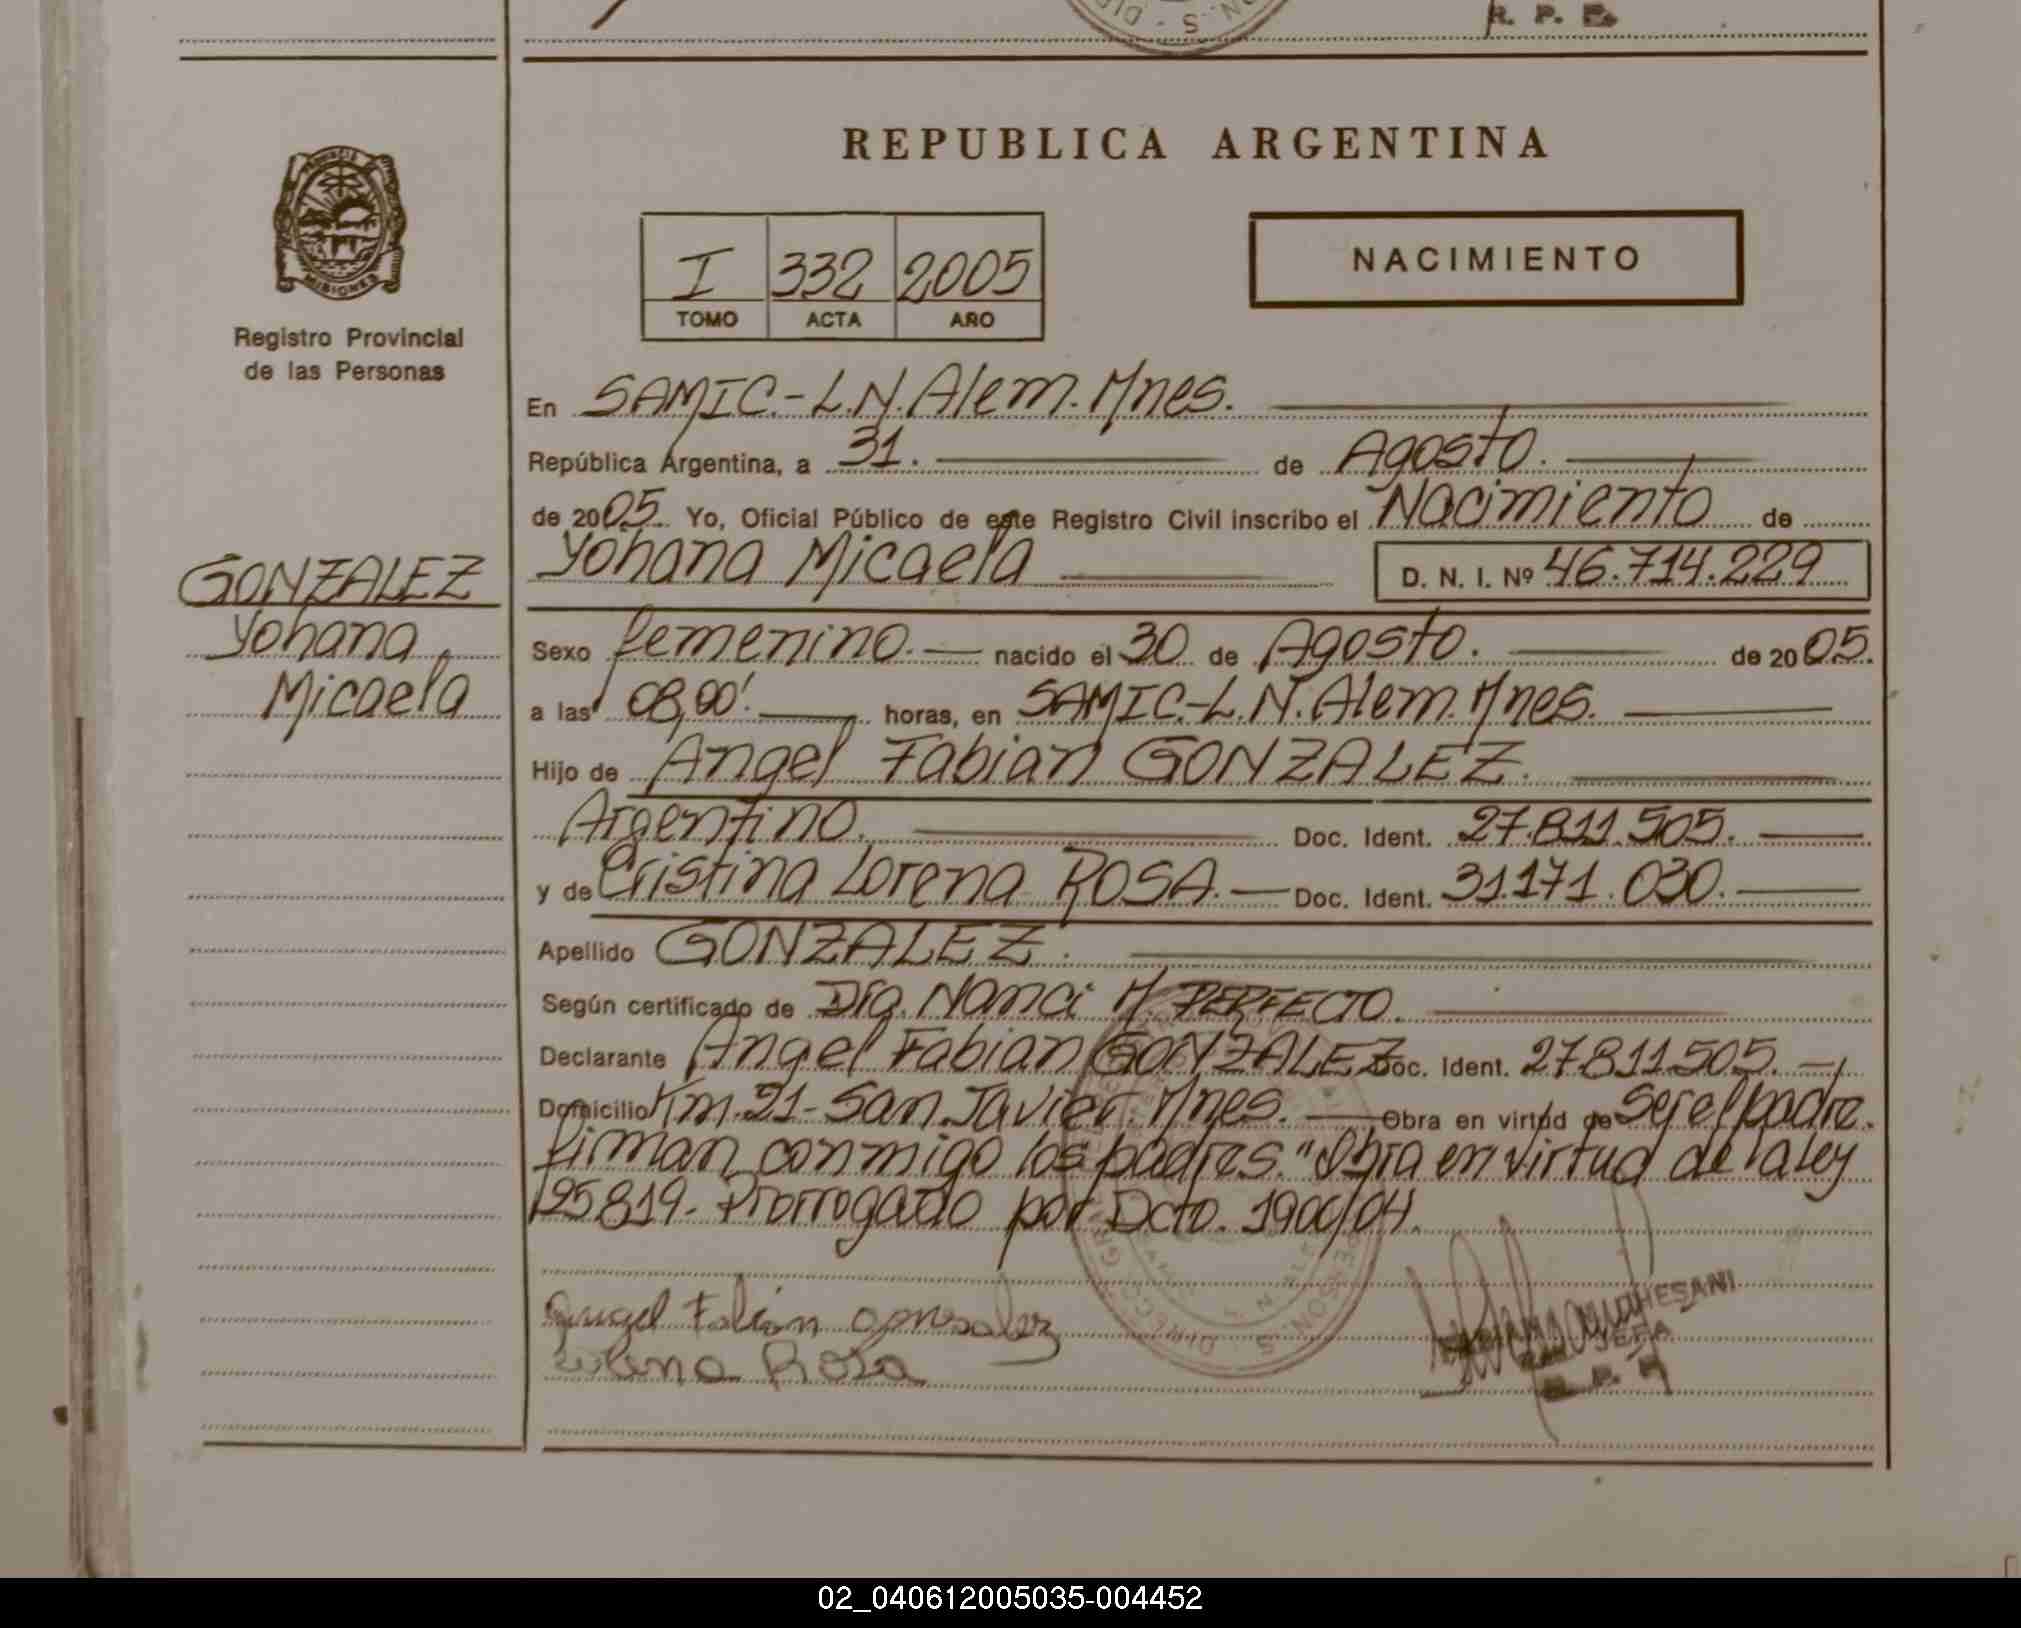 R. P. P.
REPUBLICA ARGENTINA
PROVINCIA
MISIONES
Registro Provincial
de las Personas
I 332 2005
TOMO ACTA AÑO
NACIMIENTO
En SAMIC.-L.N.Alem.Mnes.
República Argentina, a 31. de Agosto.
de 2005 Yo, Oficial Público de este Registro Civil inscribo el Nacimiento de
Yohana Micaela D. N. I. Nº 46.714.229
GONZALEZ
Yohana
Micaela
Sexo femenino.- nacido el 30 de Agosto. de 2005.
a las 08,00'. horas, en SAMIC.-L.N.Alem.Mnes.
Hijo de Angel Fabian GONZALEZ.
Argentino. Doc. Ident. 27.811.505.
y de Cristina Lorena ROSA.- Doc. Ident. 31.171.030.
Apellido GONZALEZ.
Según certificado de Dra. Nanci M. PERFECTO.
Declarante Angel Fabian GONZALEZ Doc. Ident. 27.811.505.-
Domicilio Km.21-San Javier.Mnes. Obra en virtud de Ser el padre.
firman conmigo los padres."Obra en virtud de la ley
25819.- Prorrogado por Dcto. 1900/04.
Angel Fabian Gonzalez
Rosa
JEFA
R. P.
02_040612005035-004452